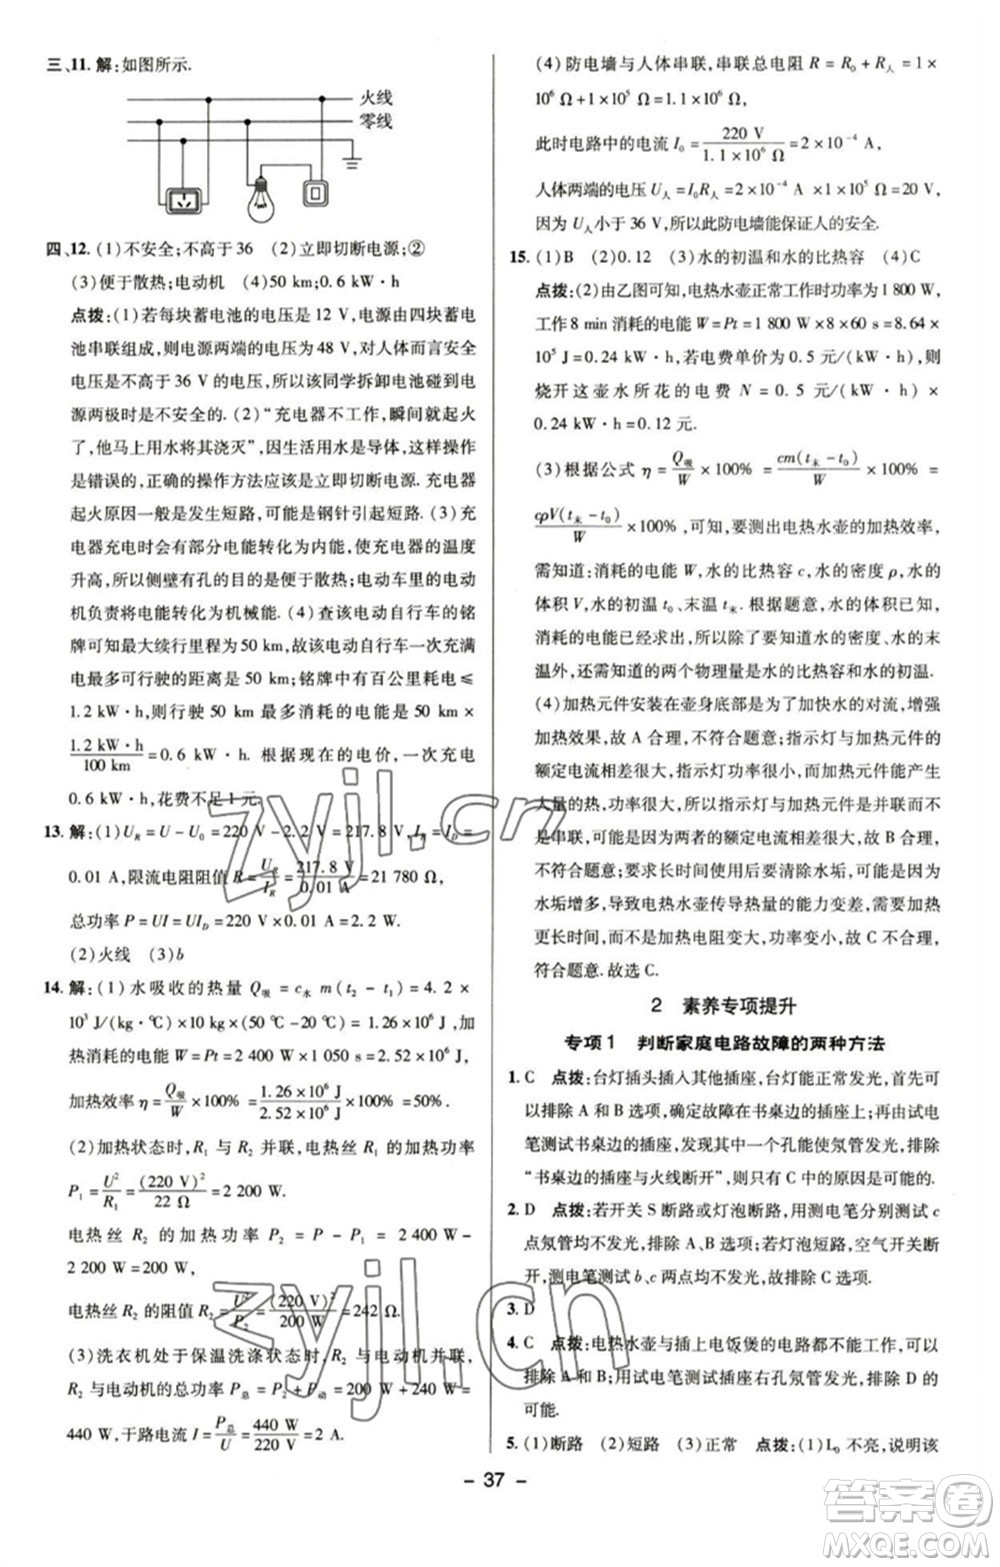 三、11. 解:如图所示.
火线
零线
四、12. (1)不安全;不高于36 (2)立即切断电源;②
(3)便于散热;电动机 (4)50 km;0.6 kW·h
点拨:(1)若每块蓄电池的电压是 12 V,电源由四块蓄电
池串联组成,则电源两端的电压为 48 V,对人体而言安全
电压是不高于 36 V 的电压,所以该同学拆卸电池碰到
电源两极时是不安全的. (2)“充电器不工作,瞬间就起火
了,他马上用水将其浇灭”,因生活用水是导体,这样操作
是错误的,正确的操作方法应该是立即切断电源. 充电器
起火原因一般是发生短路,可能是钢针引起短路. (3)充
电器充电时会有部分电能转化为内能,使充电器的温度
升高,所以侧壁有孔的目的是便于散热;电动车里的电动
机负责将电能转化为机械能. (4)查该电动自行车的铭
牌可知最大续行里程为 50 km,故该电动自行车充满一次
电可行驶的距离是 50 km;铭牌中有百公里耗电≤
1.2 kW·h,则行驶 50 km 最多消耗的电能是 50 km ×
1.2 kW·h/100 km = 0.6 kW·h. 根据现在的电价,一次充电
0.6 kW·h,花费不足 1 元.
13. 解:(1)U_R = U − U_0 = 220 V − 2.2 V = 217.8 V,I_R = I_D =
0.01 A,限流电阻阻值 R = U_R/I_R = 217.8 V/0.01 A = 21 780 Ω,
总功率 P = UI = UI_D = 220 V × 0.01 A = 2.2 W.
(2)火线 (3)b
14. 解:(1)水吸收的热量 Q吸 = c水 m(t_2 − t_1) = 4.2 ×
10³ J/(kg·℃) × 10 kg × (50℃ − 20℃) = 1.26 × 10⁶ J,加
热消耗的电能 W = Pt = 2 400 W × 1 050 s = 2.52 × 10⁶ J,
加热效率 η = Q吸/W × 100% = 1.26 × 10⁶ J/2.52 × 10⁶ J × 100% = 50%.
(2)加热状态时,R_1 与 R_2 并联,电热丝 R_1 的加热功率
P_1 = U²/R_1 = (220 V)²/22 Ω = 2 200 W.
电热丝 R_2 的加热功率 P_2 = P − P_1 = 2 400 W −
2 200 W = 200 W,
电热丝 R_2 的阻值 R_2 = U²/P_2 = (220 V)²/200 W = 242 Ω.
(3)洗衣机处于保温洗涤状态时,R_2 与电动机并联,
R_2 与电动机的总功率 P总 = P_2 + P动 = 200 W + 240 W =
440 W,干路电流 I = P总/U = 440 W/220 V = 2 A.
(4)防电墙与人体串联,串联总电阻 R = R_0 + R人 = 1 ×
10⁶ Ω + 1 × 10⁵ Ω = 1.1 × 10⁶ Ω,
此时电路中的电流 I_0 = 220 V/1.1 × 10⁶ Ω = 2 × 10⁻⁴ A,
人体两端的电压 U人 = I_0R人 = 2 × 10⁻⁴ A × 1 × 10⁵ Ω = 20 V,
因为 U人小于 36 V,所以此防电墙能保证人的安全.
15. (1)B (2)0.12 (3)水的初温和水的比热容 (4)C
点拨:(2)由乙图可知,电热水壶正常工作时功率为 1 800 W,
工作 8 min 消耗的电能 W = Pt = 1 800 W × 8 × 60 s = 8.64 ×
10⁵ J = 0.24 kW·h;若电费单价为 0.5 元/(kW·h),则
烧开这壶水所花的电费 N = 0.5 元/(kW·h) ×
0.24 kW·h = 0.12 元.
(3)根据公式 η = Q吸/W × 100% = cm(t末 − t_0)/W × 100% =
cρV(t末 − t_0)/W × 100%,可知,要测出电热水壶的加热效率,
需知道:消耗的电能 W,水的比热容 c,水的密度 ρ,水的
体积 V,水的初温 t_0、末温 t末. 根据题意,水的体积已知,
消耗的电能已经求出,所以除了知道水的密度、水的末
温外,还需知道的两个物理量是水的比热容和水的初温.
(4)加热元件安装在壶身底部是为了水的对流,增强
加热效果,故 A 合理,不符合题意;指示灯与加热元件的
额定电流相差很大,指示灯功率很小,而加热元件能产生
大量的热,功率很大,所以指示灯与加热元件是并联的,
不是串联,因为两者的额定电流相差很大,故 B 合理,不
符合题意;长时间使用后要清除水垢,是因为水加热产生
水垢,导致电热水壶传导热量的能力变差,需要加热时间
更长,而不是因为加热电阻变大,功率变小,故 C 不合理,
符合题意. 故选 C.
2 素养专项提升
专项1 判断家庭电路故障的两种方法
1. C 点拨:台灯插头插入其他插座,台灯能正常发光,首先可
以排除 A 和 B 选项,确定故障在书桌边的插座上;再由试电
笔测试书桌边的插座,发现其中一个孔能使氖管发光,排除
“书桌边的插座与火线断开”,则只有 C 中的原因是可能的.
2. D 点拨:若开关 S 断路或灯泡断路,用测电笔分别测试 c
点氖管均不发光,排除 A、B 选项;若灯泡短路,空气开关断
开,测电笔测试 b、c 两点均不发光,故排除 C 选项.
3. D
4. C 点拨:电热水壶与插上电饭煲的电路都不能工作,可以
排除 A 和 B;用试电笔测试插座右孔氖管发光,排除 D 的
可能.
5. (1)断路 (2)短路 (3)正常 点拨:(1)L_0 不亮,说明该
- 37 -
zyjl.cn
zyjl.cn
答案圈
MXQE.COM